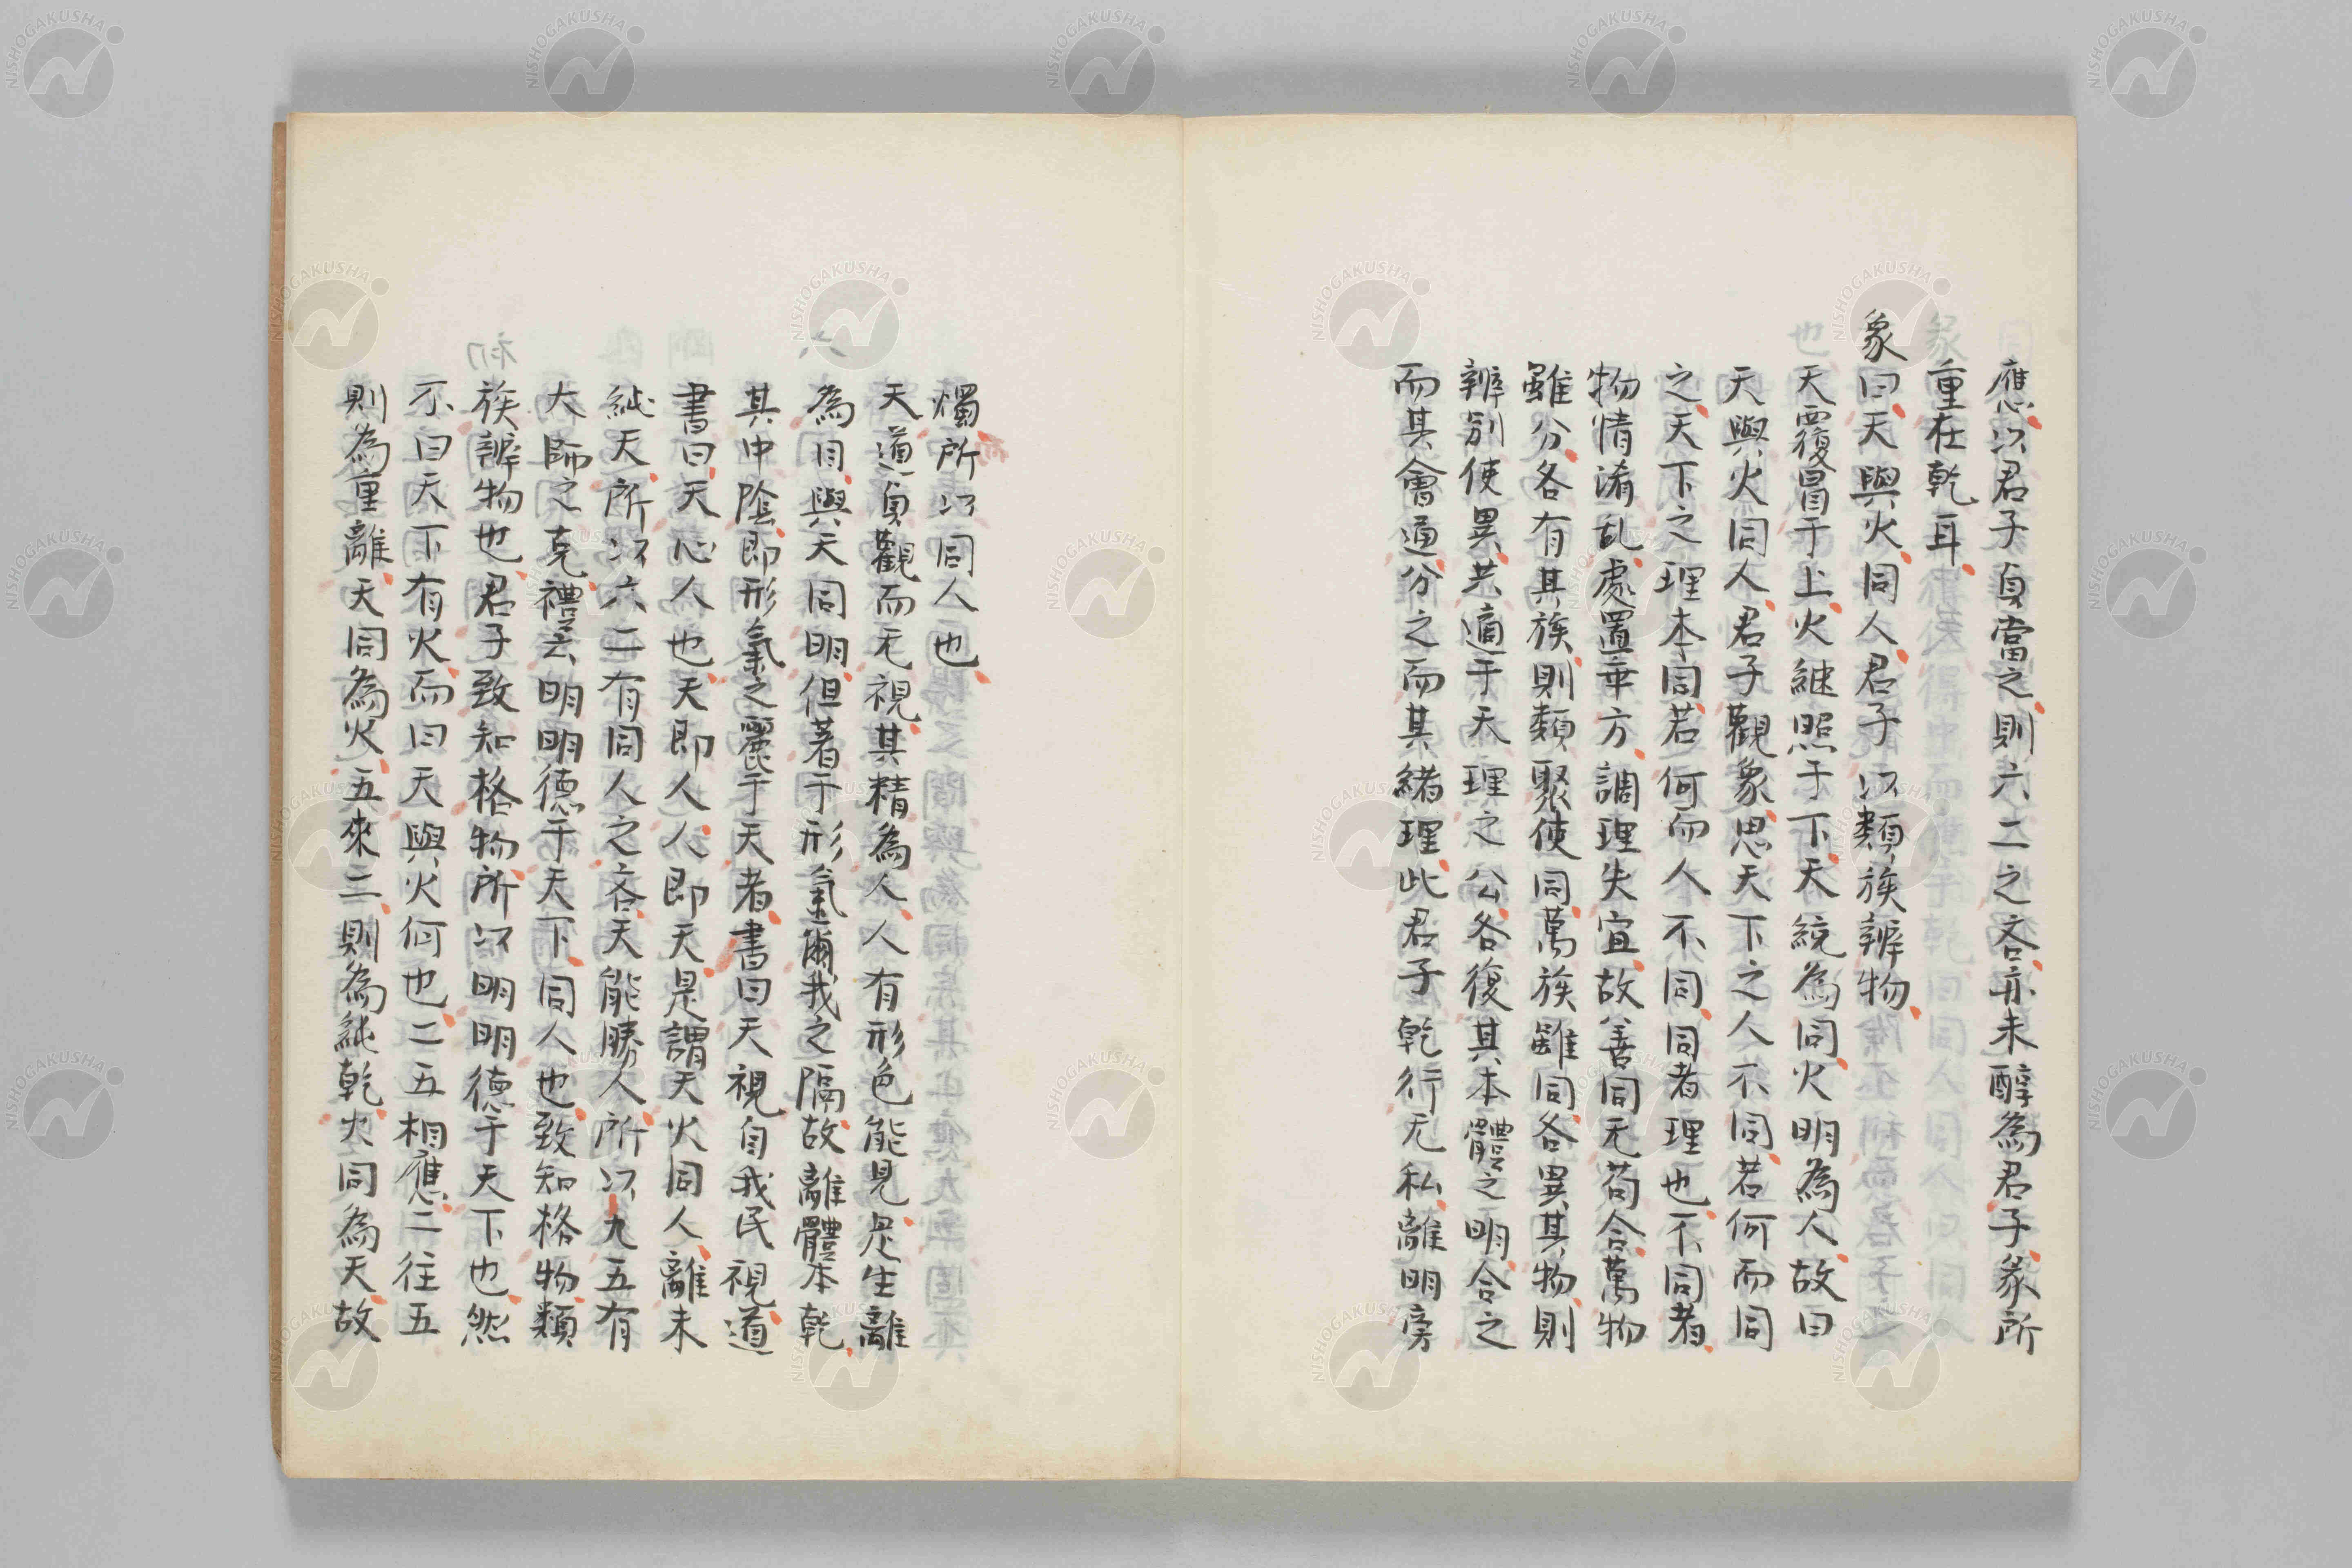 應以君子貞當之則六二之吝亦未醇為君子彖所
重在乾耳
象曰天與火同人君子以類族辨物
天覆冒于上火継照于下天統為同火明為人故曰
天與火同人君子觀象思天下之人不同若何而同
之天下之理本同若何而人不同同者理也不同者
物情淆乱處置乖方調理失宜故善同无苟合萬物
雖分各有其族則類聚使同萬族雖同各異其物則
辨别使異共適于天理之公各復其本體之明合之
而其會通分之而其緒理此君子乾行无私離明旁
燭所以同人也
天道貞觀而无視其精為人人有形色能見是生離
為目與天同明但著于形氣爾我之隔故離體本乾
其中陰即形氣之麗于天者書曰天視自我民視道
書曰天心人也天即人人即天是謂天火同人離未
純天所以六二有同人之吝天能勝人所以九五有
大師之克禮云明明德于天下同人也致知格物類
族辨物也君子致知格物所以明明德于天下也然
不曰天下有火而曰天與火何也二五相應二往五
則為重離天同為火五來二則為純乾火同為天故